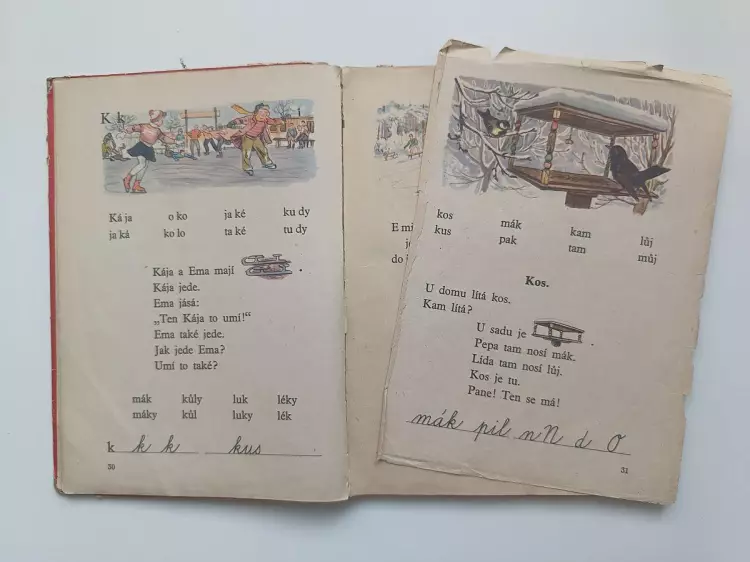 K k
Ká ja o ko ja ké ku dy
ja ká ko lo ta ké tu dy
Kája a Ema mají
Kája jede.
Ema jásá:
„Ten Kája to umí!“
Ema také jede.
Jak jede Ema?
Umí to také?
mák kůly luk léky
máky kůl luky lék
k k k kus
30
E mi
je
do j
kos mák kam lůj
kus pak tam můj
Kos.
U domu lítá kos.
Kam lítá?
U sadu je
Pepa tam nosí mák.
Lída tam nosí lůj.
Kos je tu.
Pane! Ten se má!
mák pil n N d O
31